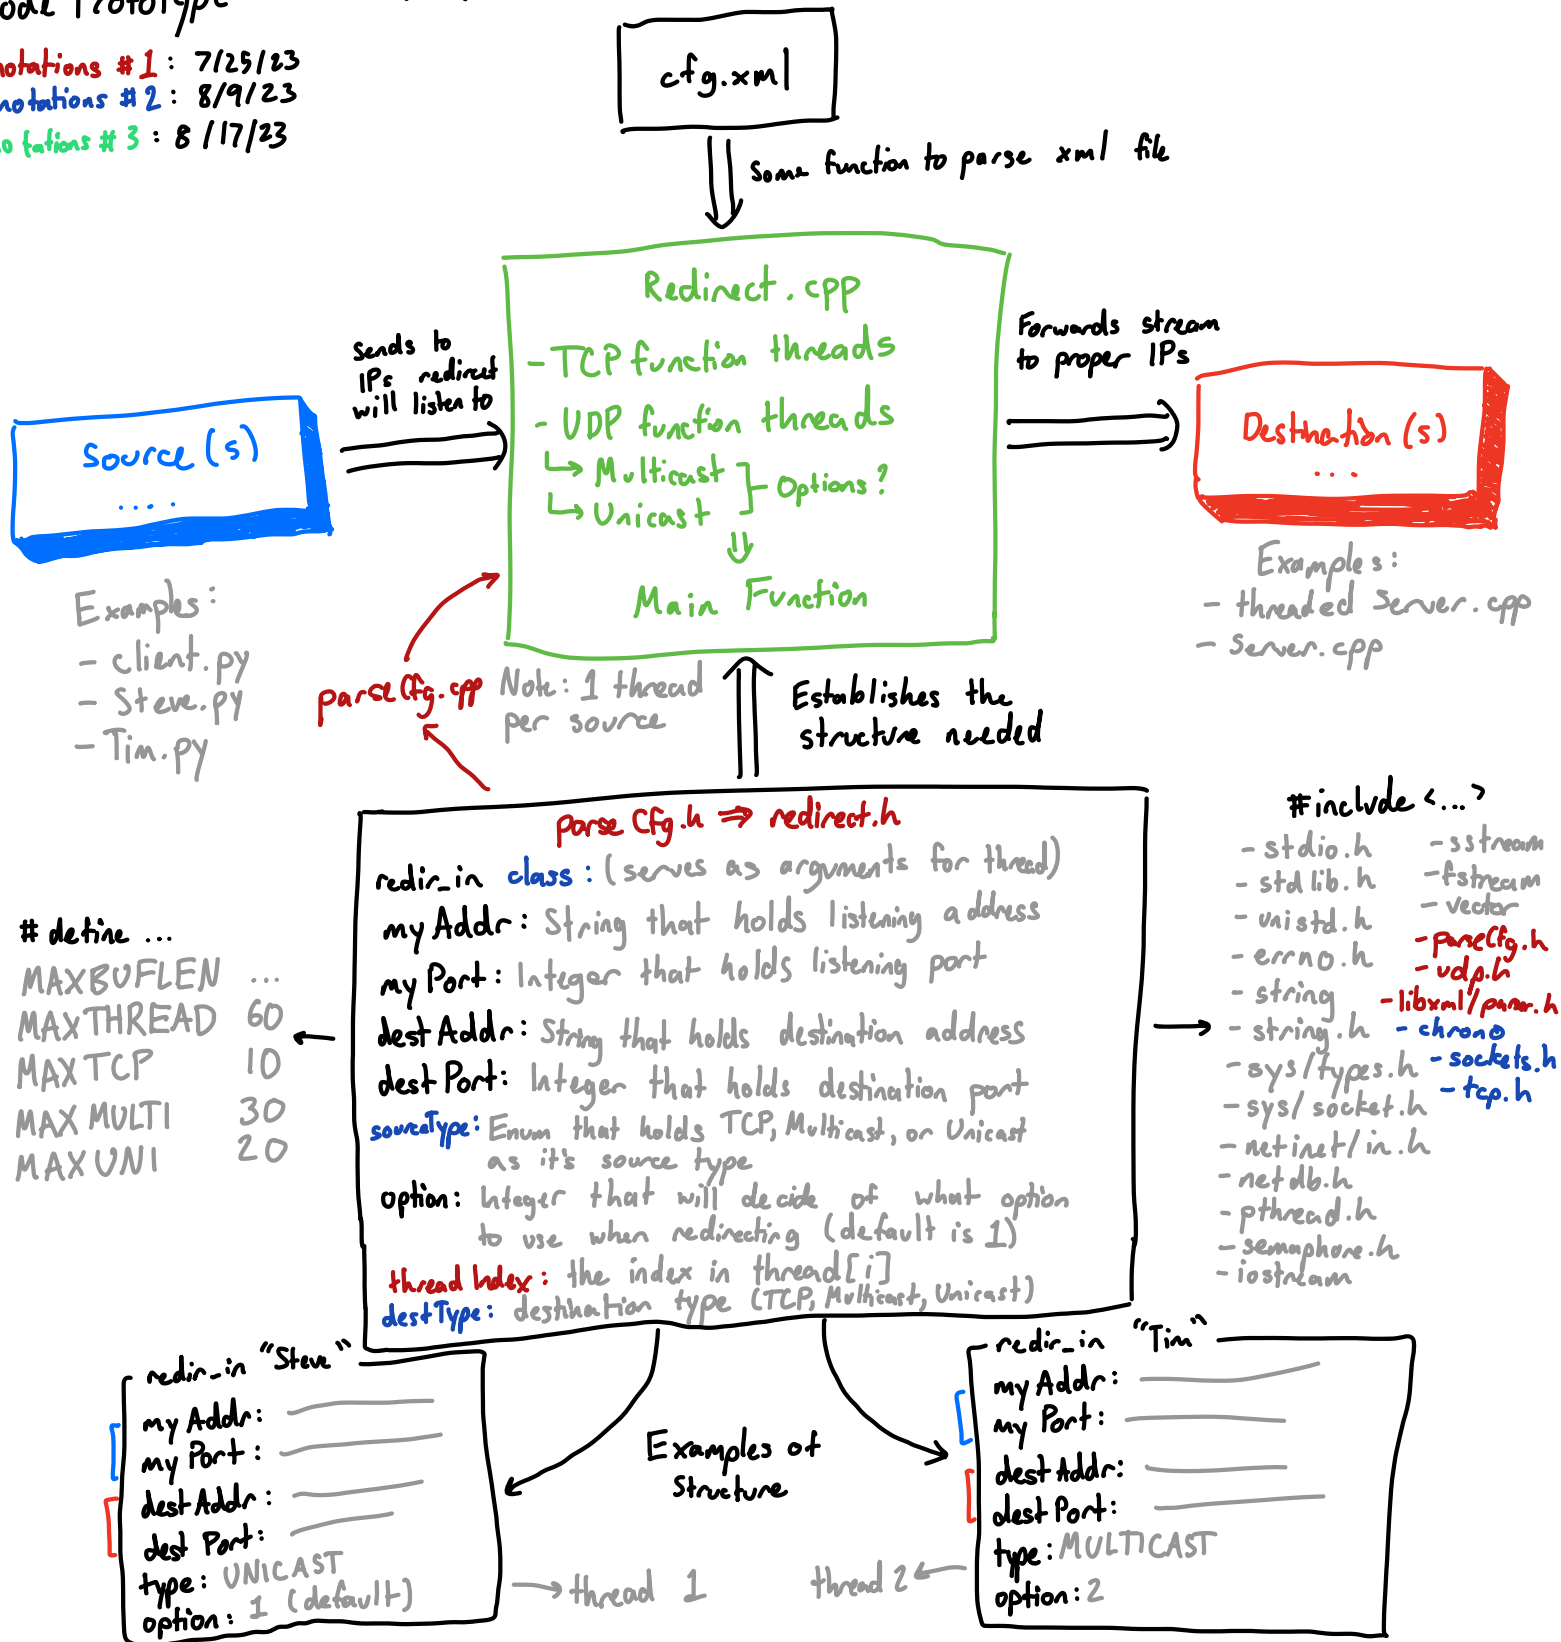 Prototype
#1: 7/25/23
#2: 8/9/23
#3: 8/17/23
cfg.xml
Some function to parse xml file
Redirect.cpp
- TCP function threads
- UDP function threads
↳ Multicast
↳ Unicast
- Options?
Main Function
Sends to
IPs redirect
will listen to
Forwards stream
to proper IPs
Source(s)
....
Destination(s)
...
Examples:
- client.py
- Steve.py
- Tim.py
Examples:
- threaded Server.cpp
- Server.cpp
parseCfg.cpp
Note: 1 thread
per source
Establishes the
structure needed
parseCfg.h ⇒ redirect.h
redir_in class: (serves as arguments for thread)
my Addr: String that holds listening address
my Port: Integer that holds listening port
dest Addr: String that holds destination address
dest Port: Integer that holds destination port
sourceType: Enum that holds TCP, Multicast, or Unicast
as it's source type
option: Integer that will decide of what option
to use when redirecting (default is 1)
thread Index: the index in thread[i]
destType: destination type (TCP, Multicast, Unicast)
# define ...
MAXBUFLEN ...
MAXTHREAD 60
MAXTCP 10
MAXMULTI 30
MAXUNI 20
#include <...>
- stdio.h
- stdlib.h
- unistd.h
- errno.h
- string
- string.h
- sys/types.h
- sys/socket.h
- netinet/in.h
- netdb.h
- pthread.h
- semaphore.h
- iostream
- sstream
- fstream
- vector
- parseCfg.h
- udp.h
- libxml/parser.h
- chrono
- sockets.h
- tcp.h
redir_in "Steve"
my Addr:
my Port:
dest Addr:
dest Port:
type: UNICAST
option: 1 (default)
→ thread 1
Examples of
Structure
redir_in "Tim"
my Addr:
my Port:
dest Addr:
dest Port:
type: MULTICAST
option: 2
thread 2 ←